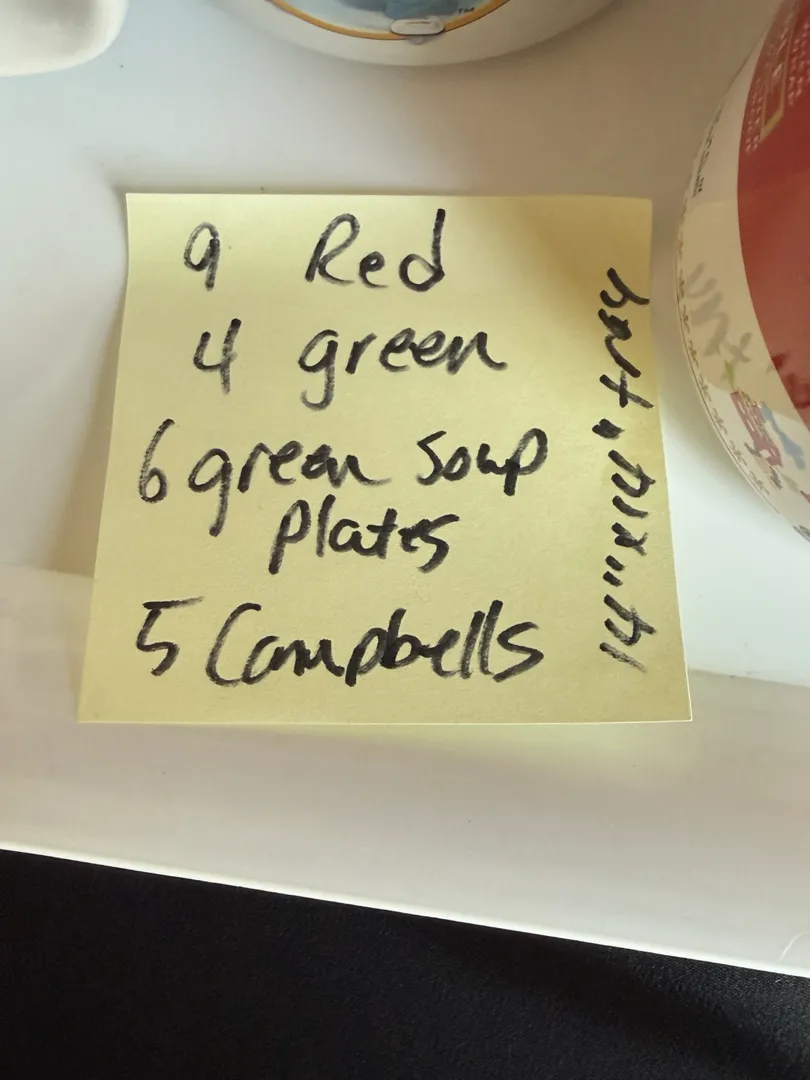 9 Red
4 green
6 green Soup
Plates
5 Campbells
14"x14" tray
TM